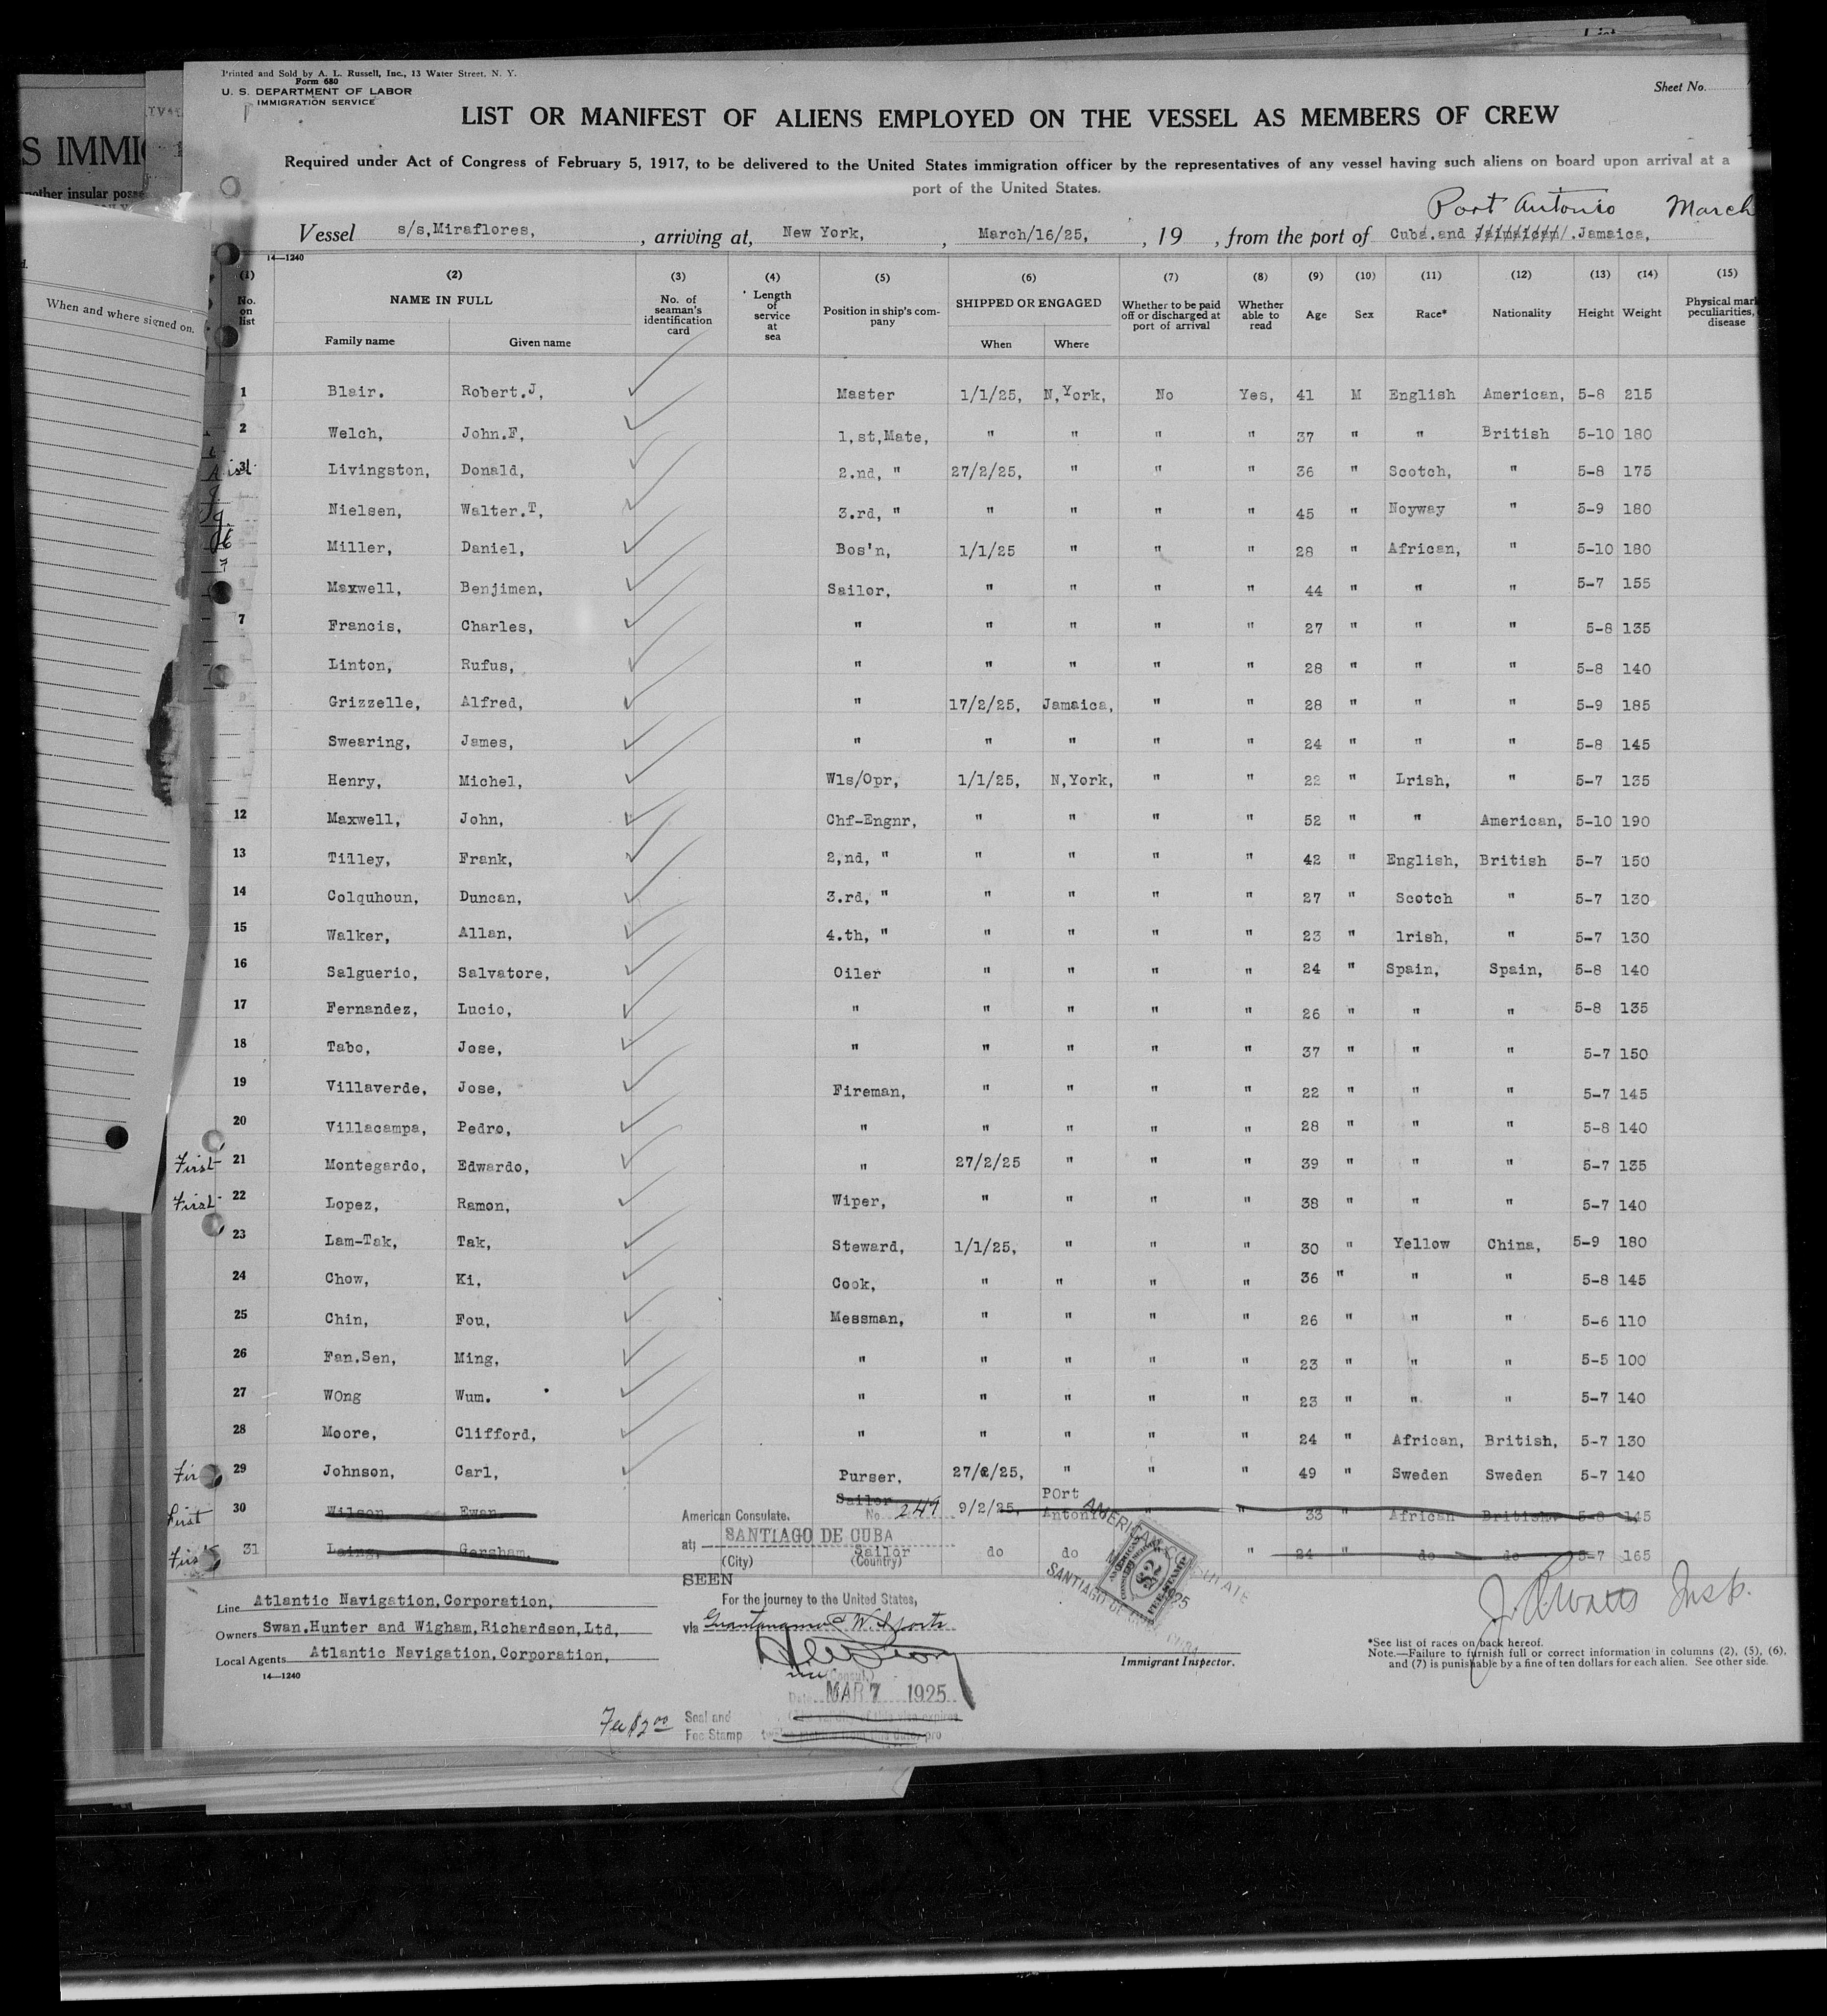 Printed and Sold by A. L. Russell, Inc., 13 Water Street, N. Y.
Form 680
U. S. DEPARTMENT OF LABOR
IMMIGRATION SERVICE
Sheet No.
LIST OR MANIFEST OF ALIENS EMPLOYED ON THE VESSEL AS MEMBERS OF CREW
Required under Act of Congress of February 5, 1917, to be delivered to the United States immigration officer by the representatives of any vessel having such aliens on board upon arrival at a
port of the United States.
Port Antonio March
Vessel s/s,Miraflores, , arriving at, New York, , March/16/25, , 19 , from the port of Cuba.and .Jamaica,
14—1240
(1) (2) (3) (4) (5) (6) (7) (8) (9) (10) (11) (12) (13) (14) (15)
No. on list NAME IN FULL Family name Given name No. of seaman's identification card Length of service at sea Position in ship's company SHIPPED OR ENGAGED When Where Whether to be paid off or discharged at port of arrival Whether able to read Age Sex Race* Nationality Height Weight Physical peculiarities, disease
1 Blair. Robert.J, Master 1/1/25, N,York, No Yes, 41 M English American, 5-8 215
2 Welch, John.F, 1,st,Mate, " " " " 37 " " British 5-10 180
3 Livingston, Donald, 2.nd, " 27/2/25, " " " 36 " Scotch, " 5-8 175
Nielsen, Walter.T, 3.rd, " " " " " 45 " Noyway " 5-9 180
Miller, Daniel, Bos'n, 1/1/25 " " " 28 " African, " 5-10 180
Maxwell, Benjimen, Sailor, " " " " 44 " " " 5-7 155
7 Francis, Charles, " " " " " 27 " " " 5-8 135
Linton, Rufus, " " " " " 28 " " " 5-8 140
Grizzelle, Alfred, " 17/2/25, Jamaica, " " 28 " " " 5-9 185
Swearing, James, " " " " " 24 " " " 5-8 145
Henry, Michel, Wls/Opr, 1/1/25, N,York, " " 22 " Lrish, " 5-7 135
12 Maxwell, John, Chf-Engnr, " " " " 52 " " American, 5-10 190
13 Tilley, Frank, 2,nd, " " " " " 42 " English, British 5-7 150
14 Colquhoun, Duncan, 3.rd, " " " " " 27 " Scotch " 5-7 130
15 Walker, Allan, 4.th, " " " " " 23 " lrish, " 5-7 130
16 Salguerio, Salvatore, Oiler " " " " 24 " Spain, Spain, 5-8 140
17 Fernandez, Lucio, " " " " " 26 " " " 5-8 135
18 Tabo, Jose, " " " " " 37 " " " 5-7 150
19 Villaverde, Jose, Fireman, " " " " 22 " " " 5-7 145
20 Villacampa, Pedro, " " " " " 28 " " " 5-8 140
First 21 Montegardo, Edwardo, " 27/2/25 " " " 39 " " " 5-7 135
First 22 Lopez, Ramon, Wiper, " " " " 38 " " " 5-7 140
23 Lam-Tak, Tak, Steward, 1/1/25, " " " 30 " Yellow China, 5-9 180
24 Chow, Ki, Cook, " " " " 36 " " " 5-8 145
25 Chin, Fou, Messman, " " " " 26 " " " 5-6 110
26 Fan.Sen, Ming, " " " " " 23 " " " 5-5 100
27 WOng Wum. " " " " " 23 " " " 5-7 140
28 Moore, Clifford, " " " " " 24 " African, British, 5-7 130
29 Johnson, Carl, Purser, 27/2/25, " " " 49 " Sweden Sweden 5-7 140
First 30 Wilson, Ewan, Sailor 9/2/25, POrt Antonio " " 33 " African British 5-8 145
31 Laing, Gersham, Sailor do do " 24 " do do 5-7 165
American Consulate. No. 249
at; SANTIAGO DE CUBA
(City) (Country)
SEEN
For the journey to the United States,
via
(Consul.)
Date MAR 7 1925
Seal and
Fee Stamp
Fee $2.00
AMERICAN CONSULATE
SANTIAGO DE CUBA, CUBA
Line Atlantic Navigation,Corporation,
Owners Swan.Hunter and Wigham,Richardson,Ltd,
Local Agents Atlantic Navigation,Corporation,
14—1240
Immigrant Inspector.
Insp.
*See list of races on back hereof.
Note.—Failure to furnish full or correct information in columns (2), (5), (6),
and (7) is punishable by a fine of ten dollars for each alien. See other side.
S IMMI
another insular
When and where signed on.